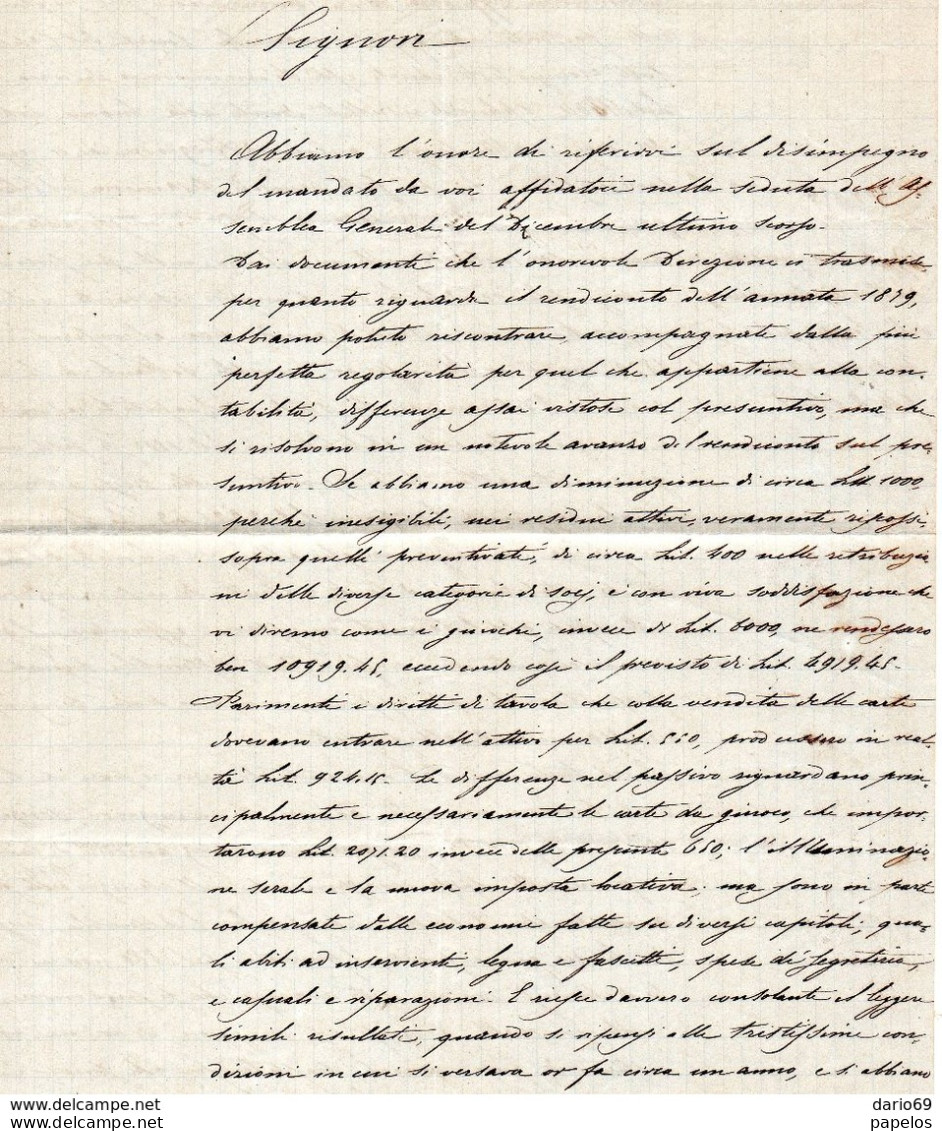 Signori
Abbiamo l'onore di riferirvi sul disimpegno
del mandato da voi affidatoci nella seduta dell' As-
semblea Generale del Dicembre ultimo scorso.
Dai documenti che l'onorevole Direzione ci trasmise
per quanto riguarda il rendiconto dell'annata 1879,
abbiamo potuto riscontrare, accompagnate dalla più
perfetta regolarità per quel che appartiene alla con-
tabilità, differenze assai vistose col presuntivo, ma che
si risolvono in un notevole avanzo del rendiconto sul pre-
suntivo. Se abbiamo una diminuzione di circa Lit. 1000,
perché inesigibili, nei residui attivi, veramente riscossi
sopra quelli preventivati, di circa Lit. 400 nelle retribuzio
ni delle diverse categorie di socj, e con viva soddisfazione che
vi diremo come i giuochi, invece di Lit. 6000, ne rendessero
ben 10919.45, eccedendo così il previsto di Lit. 4919.45.
Parimenti i diritti di tavola che colla vendita delle carte
dovevano entrare nell'attivo per Lit. 550, produssero in real-
tà Lit. 924.15. Le differenze nel passivo riguardano prin-
cipalmente e necessariamente le carte da giuoco, che impor-
tarono Lit. 2071.20 invece delle presunte 650; l'illuminazio-
ne serale e la nuova imposta locativa; ma sono in parte
compensate dalle economie fatte su diversi capitoli, qua-
li abiti ad inserviente, legna e fascetti, spese di segreteria,
e casuali e riparazioni. E riesce davvero consolante il leggere
simili risultati, quando si ripensi alle tristissime con-
dizioni in cui si versava or fa circa un anno, e si abbiano
dario69
papelos